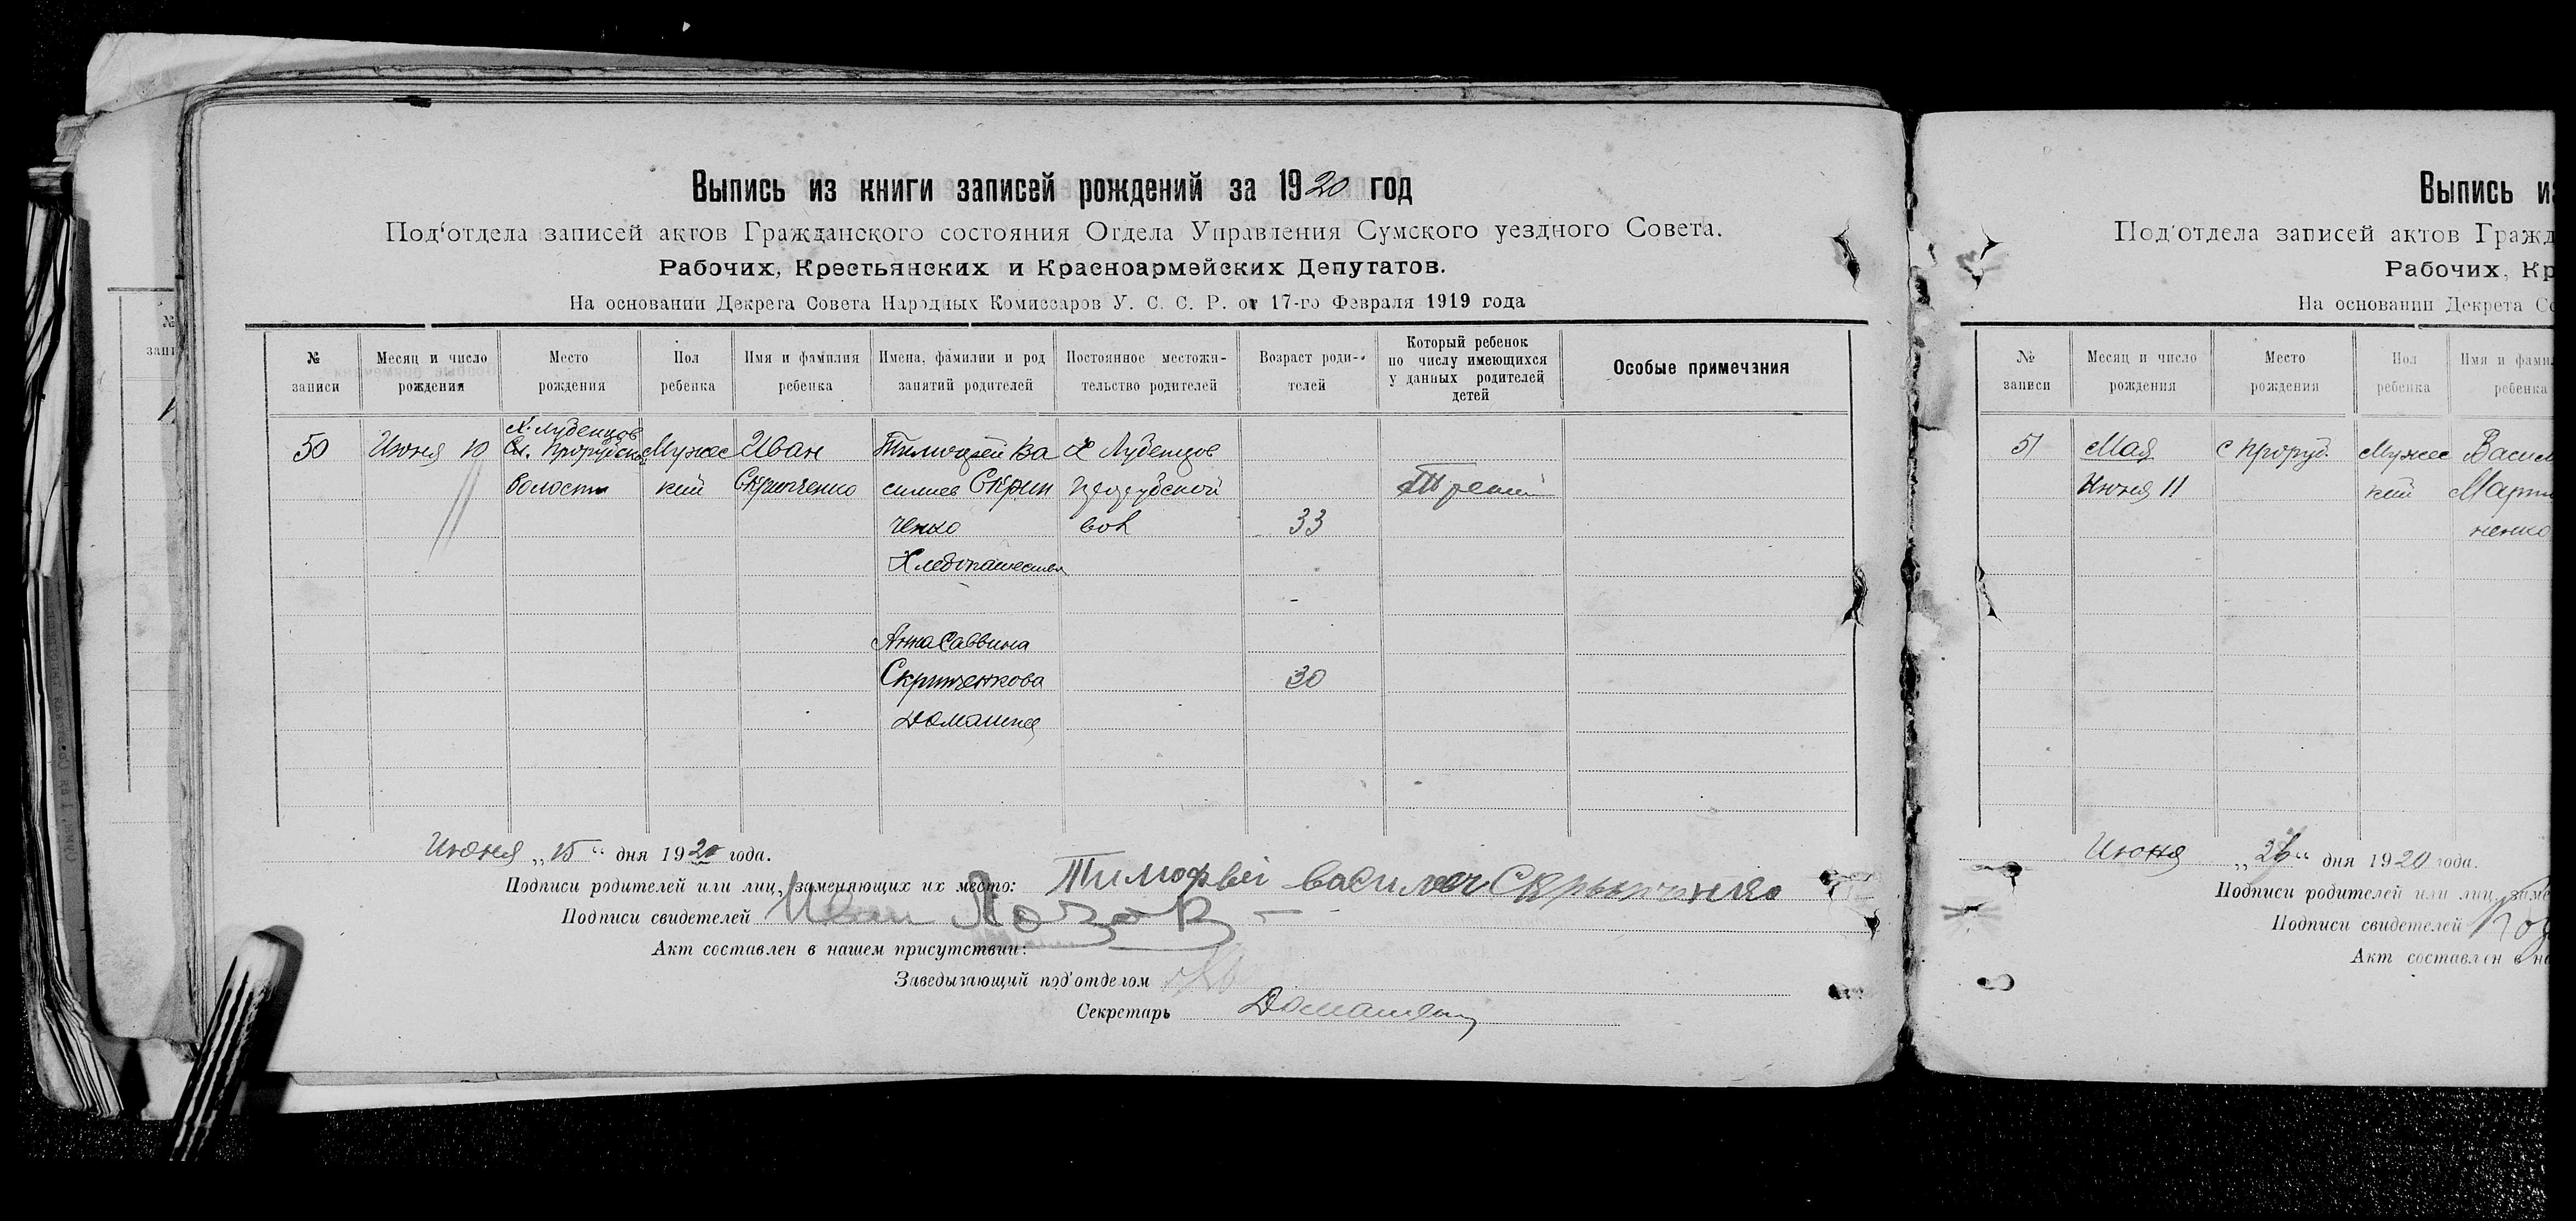 Выпись из книги записей рождений за 1920 год
Под‘отдела записей актов Гражданского состояния Отдела Управления Сумского уездного Совета.
Рабочих, Крестьянских и Красноармейских Депутатов.
На основании Декрета Совета Народных Комиссаров У. С. С. Р. от 17-го Февраля 1919 года
№ записи
Месяц и число рождения
Место рождения
Пол ребенка
Имя и фамилия ребенка
Имена, фамилии и род занятий родителей
Постоянное местожи-
тельство родителей
Возраст роди-
телей
Который ребенок
по числу имеющихся
у данных родителей
детей
Особые примечания
50
Июня 10
Х. Луденцов
Прорубской
волости
Мужес
кий
Иван
Скрипченко
Тимофей Ва
сильев Скрип
ченко
Хлебопашество
Анна Саввина
Скрипченкова
Домашнее
Х Луденцов
Прорубской
вол
33
30
Третий
Июня „15“ дня 1920 года.
Подписи родителей или лиц, заменяющих их место: Тимофей
Подписи свидетелей Иван Лозов
Акт составлен в нашем присутствии:
Заведывающий под‘отделом
Секретарь
Выпись из
Под‘отдела записей актов Гражд
Рабочих, Кр
На основании Декрета Со
№ записи
Месяц и число рождения
Место рождения
Пол ребенка
Имя и фами
ребенка
51
Мая
Июня 11
с Проруб.
Мужес
кий
Васил
Март
ненко
Июня „26“ дня 1920 года.
Подписи родителей или лиц, заме
Подписи свидетелей
Акт составлен в на